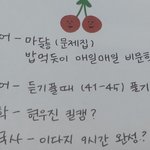 어 - 마독 (문제집)
밥먹듯이 매일매일 비문학
어 - 듣기풀때 (41-45) 풀기
학 - 현우진 킬캠?
국사 - 이다지 9시간 완성?